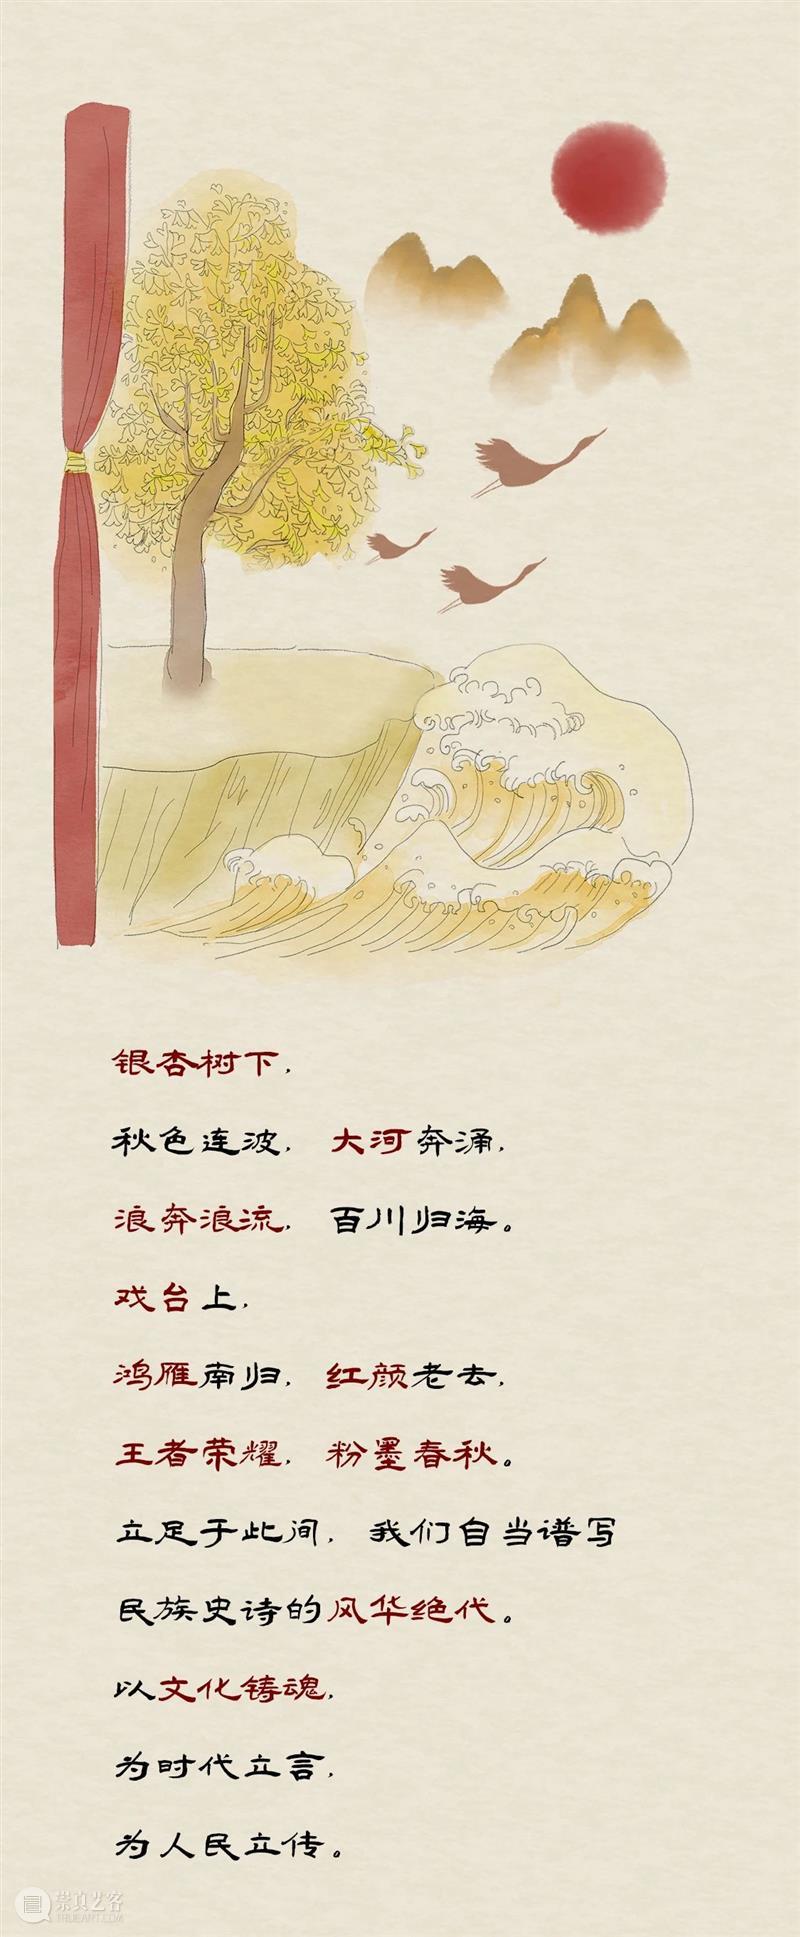 银杏树下，
秋色连波，大河奔涌，
浪奔浪流，百川归海。
戏台上，
鸿雁南归，红颜老去，
王者荣耀，粉墨春秋。
立足于此间，我们自当谱写
民族史诗的风华绝代。
以文化铸魂，
为时代立言，
为人民立传。
崇真艺客
TRUEART.COM